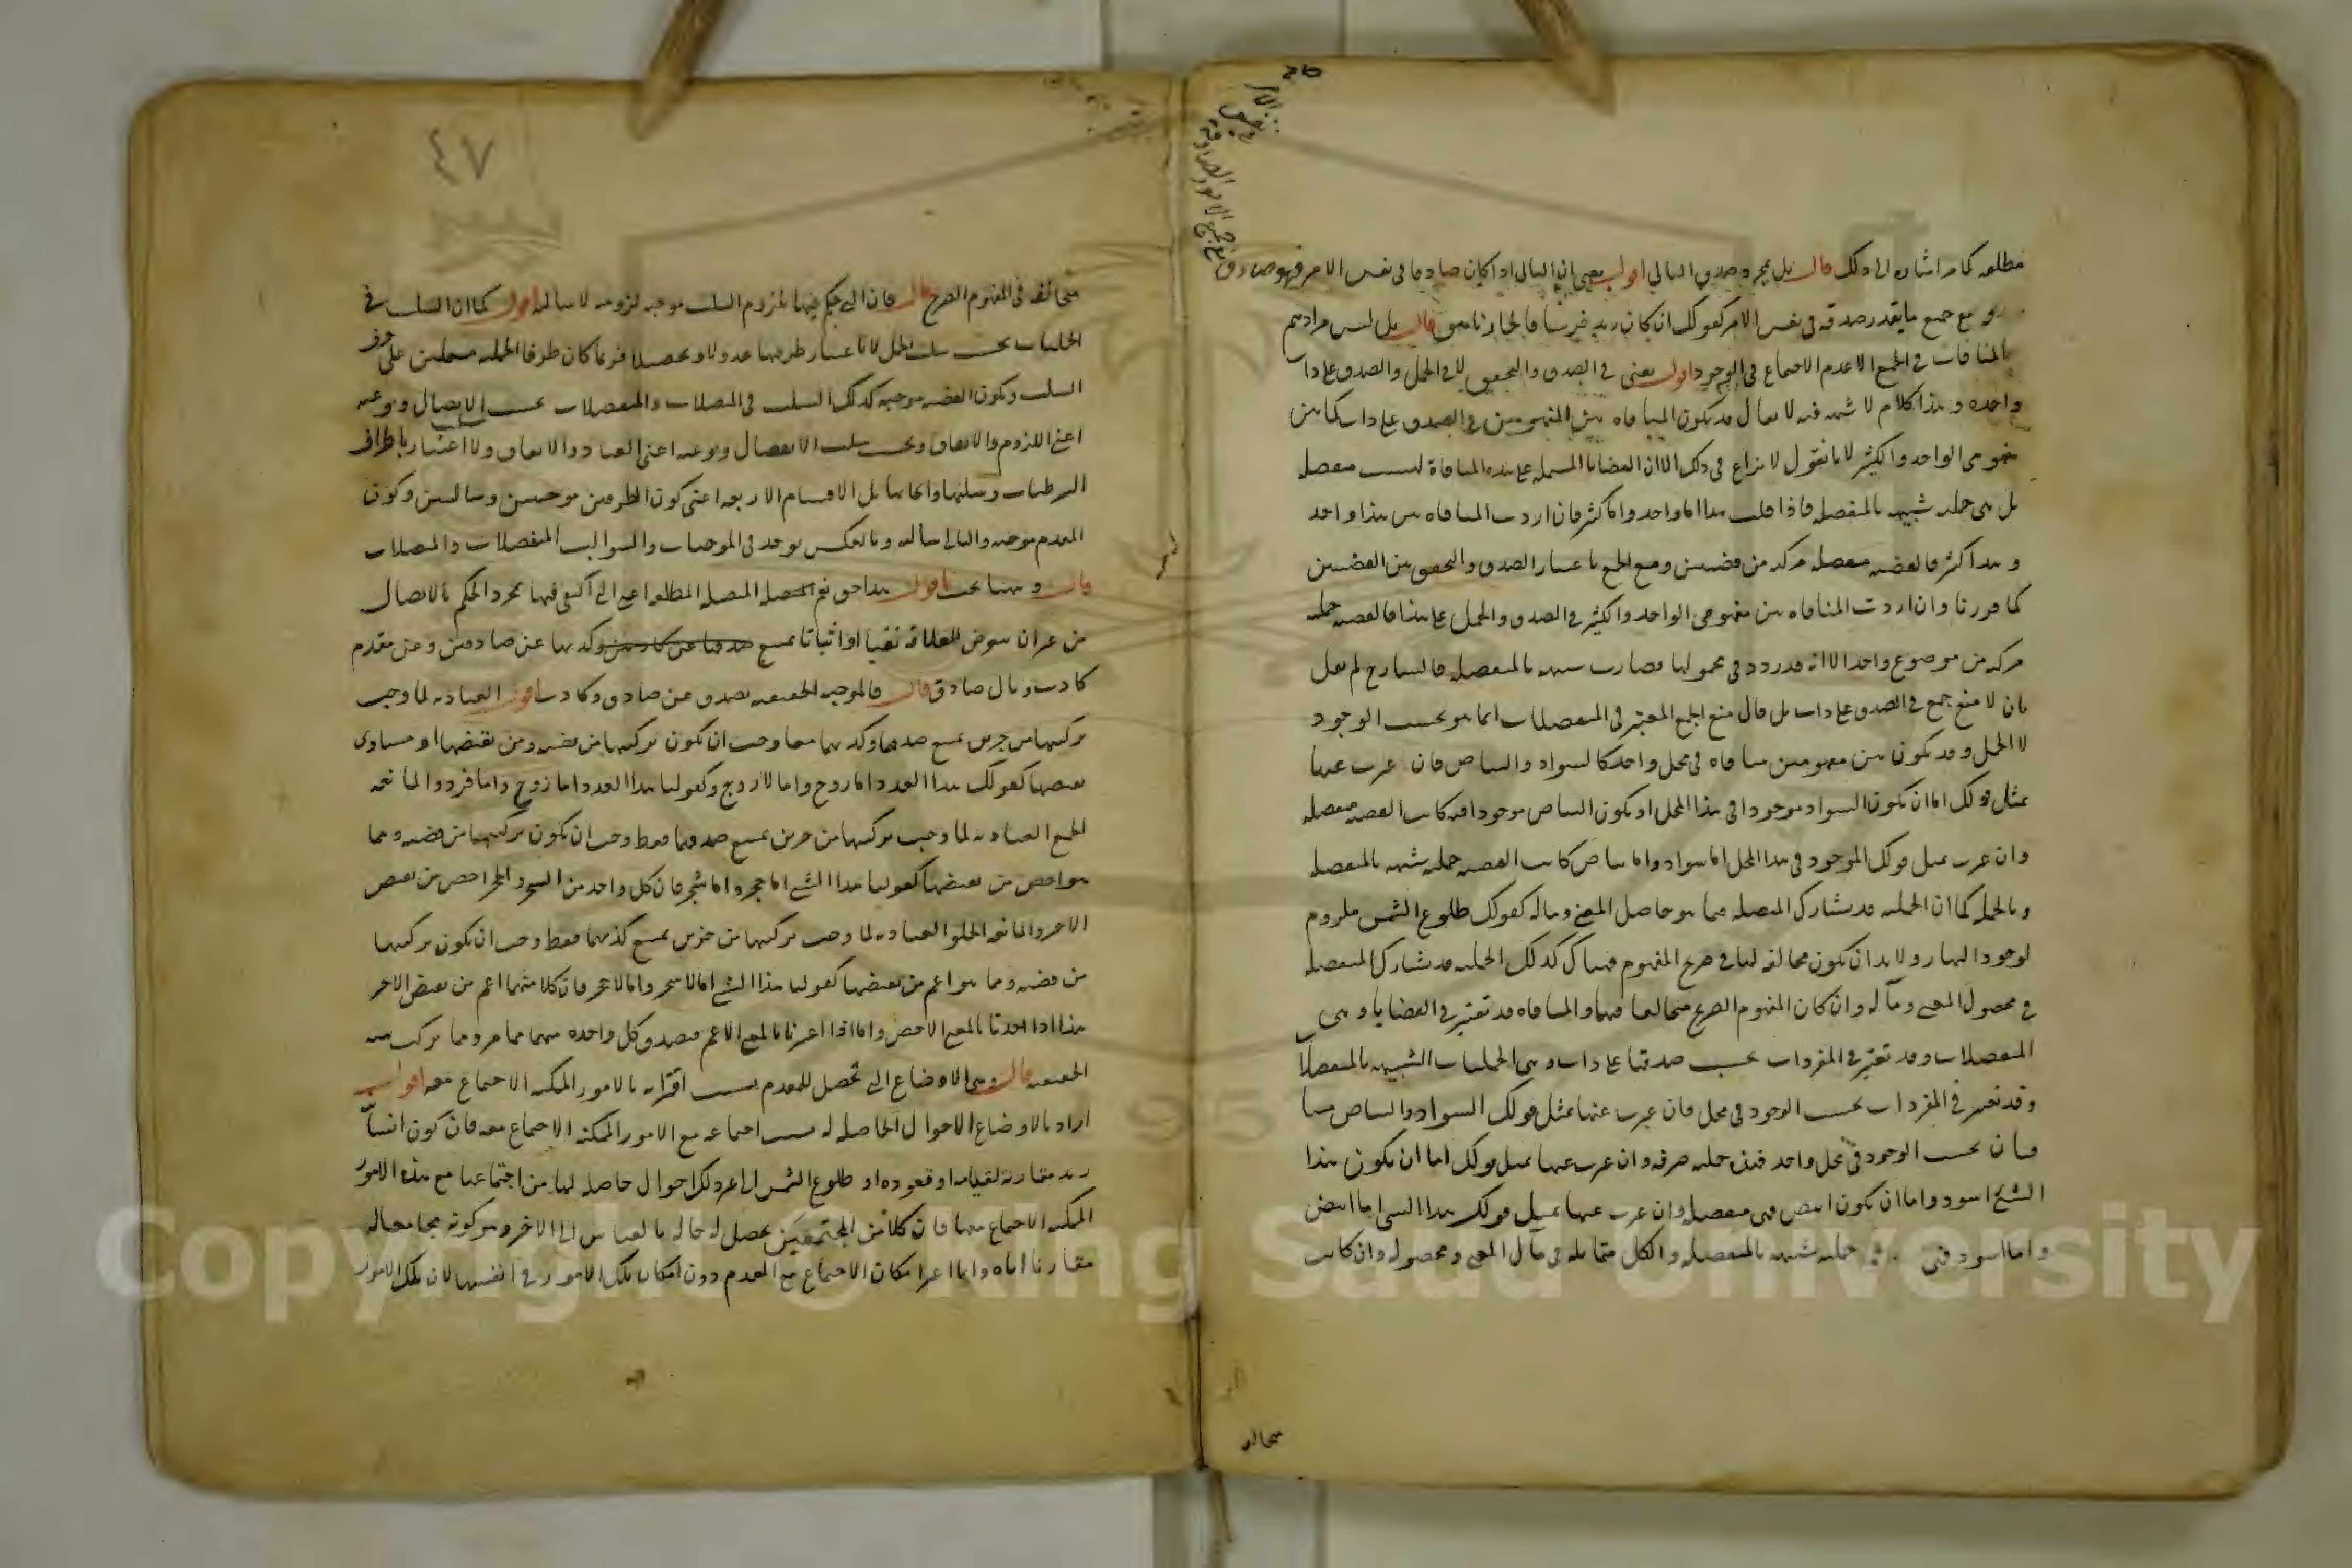 مطلقه كما مر اشاره الى ذلك قال بل بمجرد صدق التالى اقول يعنى ان التالى اذا كان صادقا فى نفس الامر فهو صادق
مع جميع الامور الصادقة فى نفس الامر
مع جميع ما يقدر صدقه فى نفس الامر كقولك ان كان زيد فرسا فالحمار ناهق قال بل ليس مرادهم
بالمنافات فى الجمع الا عدم الاجتماع فى الوجود اقول يعنى فى الصدق والتحقق لا فى الحمل والصدق على ذات
واحده وهذا كلام لا شبهه فيه لا يقال قد يكون المنافاه بين المفهومين فى الصدق على ذات كما بين
مفهومى الواحد والكثير لانا نقول لا نزاع فى ذلك الا ان القضايا المشتمله على هذه المنافاة ليست منفصله
بل هى حمليه شبيهه بالمنفصله فاذا قلت هذا اما واحد واما كثير فان اردت المنافاه بين هذا واحد
وهذا كثير فالقضيه منفصله مركبه من قضيتين ومنع الجمع باعتبار الصدق والتحقق بين القضيتين
كما قررنا وان اردت المنافاه بين مفهومى الواحد والكثير فى الصدق والحمل على هذا فالقضيه حمليه
مركبه من موضوع واحد الا انه قد ردد فى محمولها فصارت شبيهه بالمنفصله فالشارح لم يقل
بان لا منع جمع فى الصدق على ذات بل قال منع الجمع المعتبر فى المنفصلات انما هو بحسب الوجود
لا الحمل وقد يكون بين مفهومين منافاه فى محل واحد كالسواد والبياض فان عبرت عنها
بمثل قولك اما ان يكون السواد موجودا فى هذا المحل او يكون البياض موجودا فيه كانت القضيه منفصله
وان عبرت بمثل قولك الموجود فى هذا المحل اما سواد واما بياض كانت القضيه حمليه شبيهه بالمنفصله
وبالجمله كما ان الحمليه قد تشارك المتصله فيما هو حاصل المعنى وماله كقولك طلوع الشمس ملزوم
لوجود النهار ولا بد ان تكون مخالفه لها فى صريح المفهوم هناك كذلك الحمليه قد تشارك المنفصله
فى محصول المعنى ومآله وان كان المفهوم الصريح متخالفا فيهما والمنافاه قد تعتبر فى القضايا وهى
المنفصلات وقد تعتبر فى المفردات بحسب صدقها على ذات وهى الحمليات الشبيهه بالمنفصلات
وقد تعتبر فى المفردات بحسب الوجود فى محل فان عبرت عنها بمثل قولك السواد والبياض متنا
فيان بحسب الوجود فى محل واحد فهى حمليه صرفه وان عبرت عنها بمثل قولك اما ان يكون هذا
الشئ اسود واما ان يكون ابيض فهى منفصله وان عبرت عنها بمثل قولك هذا الشئ اما ابيض
واما اسود فهى حمليه شبيهه بالمنفصله والكل متقابله فى مآل المعنى ومحصوله وان كانت
متخالفه
٤٧
متخالفه فى المفهوم الصريح قال فان التى حكم فيها بلزوم السلب موجبه لزوميه لا سالبه اقول كما ان السلب فى
الحمليات بحسب سلب الحمل لا باعتبار طرفيها عدولا وتحصيلا فربما كان طرفا الحمليه مشتملين على حرف
السلب وتكون القضيه موجبه كذلك السلب فى المتصلات والمنفصلات بحسب سلب الاتصال ونوعيه
اعنى اللزوم والاتفاق وبحسب سلب الانفصال ونوعيه اعنى العناد والاتفاق ولا اعتبار باطراف
الشرطيات وسلبها وايجابها بل الاقسام الاربعه اعنى كون الطرفين موجبتين وسالبتين وكون
المقدم موجبه والتالى سالبه وبالعكس توجد فى الموجبات والسوالب المنفصلات والمتصلات
قال وههنا بحث اقول هذا حق نعم المتصله المطلقه اعنى التى اكتفى فيها بمجرد الحكم بالاتصال
من غير ان يتعرض للعلاقه نفيا او اثباتا يمتنع كذبها عن صادقين وعن مقدم
كاذب وتال صادق قال فالموجبه الحقيقيه تصدق عن صادق وكاذب اقول العناديه لما وجب
تركيبها من جزئين يمتنع صدقهما وكذبهما معا وجب ان يكون تركيبها من قضيه ومن نقيضها او مساوى
نقيضها كقولك هذا العدد اما زوج واما لا زوج وكقولنا هذا العدد اما زوج واما فرد والمانعه
الجمع العناديه لما وجب تركيبها من جزئين يمتنع صدقهما فقط وجب ان يكون تركيبها من قضيه ومما
هو اخص من نقيضها كقولنا هذا الشئ اما حجر واما شجر فان كل واحد من الشجر والحجر اخص من نقيض
الاخر والمانعه الخلو العناديه لما وجب تركيبها من جزئين يمتنع كذبهما فقط وجب ان يكون تركيبها
من قضيه ومما هو اعم من نقيضها كقولنا هذا الشئ اما لا شجر واما لا حجر فان كلا منهما اعم من نقيض الاخر
هذا اذا اخذنا بالمعنى الاخص واما اذا اعتبرنا بالمعنى الاعم فيصدق كل واحده منهما مما مر ومما تركب منه
الحقيقيه قال وهى الاوضاع التى تحصل للمقدم بسبب اقترانه بالامور الممكنه الاجتماع معه اقول
اراد بالاوضاع الاحوال الحاصله له بسبب اجتماعه مع الامور الممكنه الاجتماع معه فان كون انسانيه
زيد مقارنة لقيامه او قعوده او طلوع الشمس الى غير ذلك احوال حاصله لها من اجتماعها مع هذه الامور
الممكنه الاجتماع معها فان كلا من المجتمعين يحصل له حاله بالقياس الى الاخر وهو كونه مجامعا له
مقارنا اياه وانما اعتبر امكان الاجتماع مع المقدم دون امكان تلك الامور فى انفسها لان تلك الامور